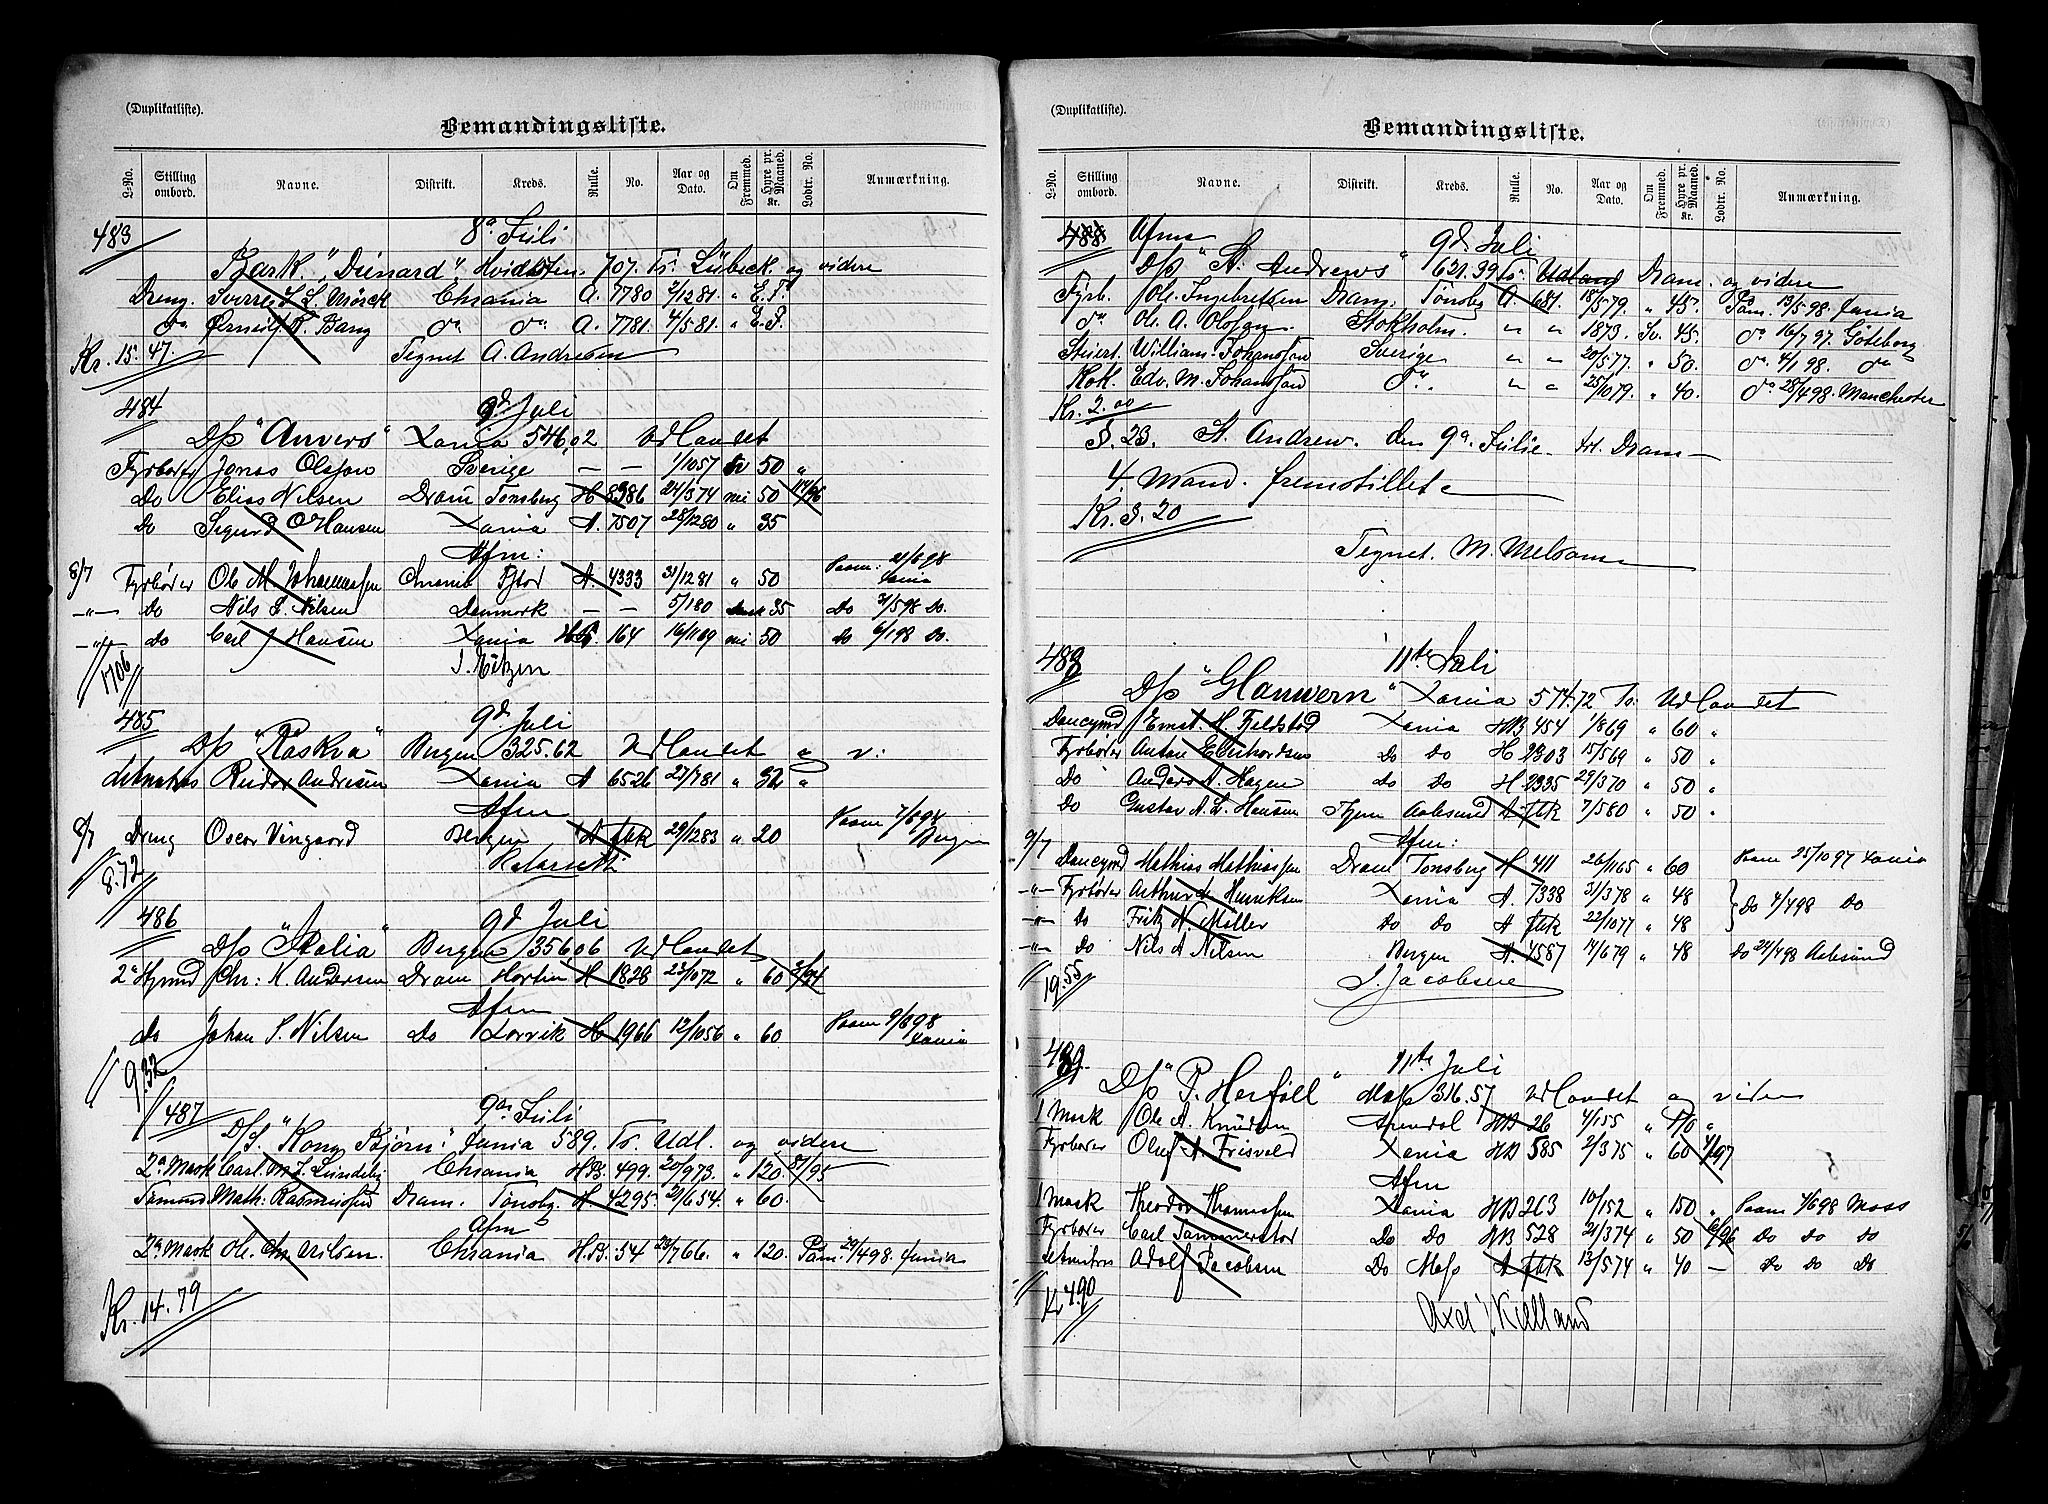 (Duplikatliste).
Bemandingsliste.
L-No. Stilling ombord. Navne. Distrikt. Kreds. Rulle. No. Aar og Dato. Om Fremmed. Hyre pr. Maaned. Kr. Lodtr. No. Anmærkning.
483 8d Juli
Bark. "Dunard". 707. Ts. Lübeck. og videre
Dreng. Sverre L. Mörck Chrania A. 7780 2/12 81. " E.T.
do R. Bang do do A. 7781. 4/5 81. " E.T.
Kr. 15.47. Tegnet A. Andresen
484 9d Juli
D/s "Anvers" Xania 546,02 Udlandet
Fyrböter Jonas Olsson Sverige — — 1/10 57 Sv 50 "
Do Elias Nilsen Dram Tonsberg H 8986 24/3 74 nei 50 114/96
Do Sigurd O Hansen Xania A. 7507 28/12 80 " 35
Afm:
8/7 Fyrböter Ole M. Johannessen Chrania Fjtad A. 4333 31/12 81 " 50 Paam: 21/6 98 Xania
—"— Do Nils S. Nilsen Danmark — — 5/1 80 Dansk 35 Do 31/5 98 Do.
—"— do Carl J Hansen Xania HB. 164 16/11 69 nei 50 Do 6/1 98 Do.
17.06
485 9d Juli
D/s "Råskva" Bergen 325.62 Udlandet o v:
Letmatros Reidar Andresen Xania A 6526 27/7 81 " 32 "
Afm
8/7 Dreng Oscar Vingaard Bergen A fbk 29/12 83 " 20 Paam 7/6 98 Bergen
8.72
486 9d Juli
D/s "Italia" Bergen 356.06 Udlandet
2d Hyrmd Chr: M. Andersen Dram Horten H 1828 23/10 72 " 60 2/94
Afm
Do Johan S. Nilsen Do Larvik H 1966 12/10 56 " 60 Paam 9/6 98 Xania
9.32
487 9de Juli
D/S. "Kong Bjørn". Xania 589. Ts. Udl. og videre
2d Mask Carl. M. L. Lundeby Chrania HB. 499. 20/9 73. " 120. 81/95
Tömmd Math. Rasmussen Dram. Tønsbg. H. 4295. 29/6 54. " 60.
Afm
2d Mask Ole. Chr. Carlsen. Chrania HB. 54 23/7 66. " 120. Paam. 29/4 98. Xania
Kr. 14.79
(Duplikatliste).
Bemandingsliste.
L-No. Stilling ombord. Navne. Distrikt. Kreds. Rulle. No. Aar og Dato. Om Fremmed. Hyre pr. Maaned. Kr. Lodtr. No. Anmærkning.
488 Afm 9d. Juli
D/s "St. Andrews" 621.39 Ts. Udland Dram. og videre
Fyrb. Ole. Ingebretsen Dram. Tönsbg A. 681. 18/5 79. " 45. Paam. 13/5 98. Xania
do Ole. A. Olofson. Stokholm. " " 1873. Sv. 45. do 16/7 97. Göteborg
Stuert. William. Johansson Sverige " " 20/5 77. " 50. do 4/1 98. do
Kok. Edv. M. Johansson do. " " 25/10 79. " 40. do 28/4 98. Manchester
Kr. 2.00
S. 23. St. Andrew. den 9d. Juli. trl. Dram —
4. Mand. fremstillet
Kr. 3.20
Tegnet. M. Melsom
488 11te Juli
D/s "Glanwern" Xania 574.72 Ts. Udlandet
Doncymd Ernst. H. Fjeldstad Xania HB 454 1/8 69 " 60 "
Fyrböter Anton Eberhardsen Do do H 2303 15/5 69 " 50 "
Do Anders A. Hagen do Do H 2335 29/3 70 " 50 "
Do Gustav A. L. Hansen Thjem Aalesund A fbk 7/5 80 " 50 "
Afm:
9/7 Doncymd Mathias Mathiassen Dram Tonsberg H 411 26/11 65 " 60 Paam 25/10 97 Xania
—"— Fyrböter Arthur Henriksen Xania A. 7338 31/3 78 " 48
—"— do Fritz N. Möller Do do A fbk 22/10 77 " 48 Do 4/4 98 Do
—"— Do Nils A Nilsen Bergen A 4587 14/6 79 " 48 Do 24/4 98 Aalesund
19.55 J. Jacobsen
489. 11te Juli
D/s "P. Herföll" Moss 316.57 Udlandet og viden
1 Mask Ole A. Knudsen Arendal HB 26 4/1 55 "
Fyrböter Oluf A. Frisvold Xania HB 585 2/3 75 " 60 4/97
Afm
1 Mask Theodor Thomessen Xania HB 263 10/1 52 " 150 " Paam 4/6 98 Moss
Fyrböter Carl Tammerstor Do Do HB 528 21/3 74 " 50 6/96 Do do do
Letmatros Adolf Jacobsen Do Moss A fbk 13/5 74 " 40 — Do Do Do
Kr 4.90
Axel Kielland